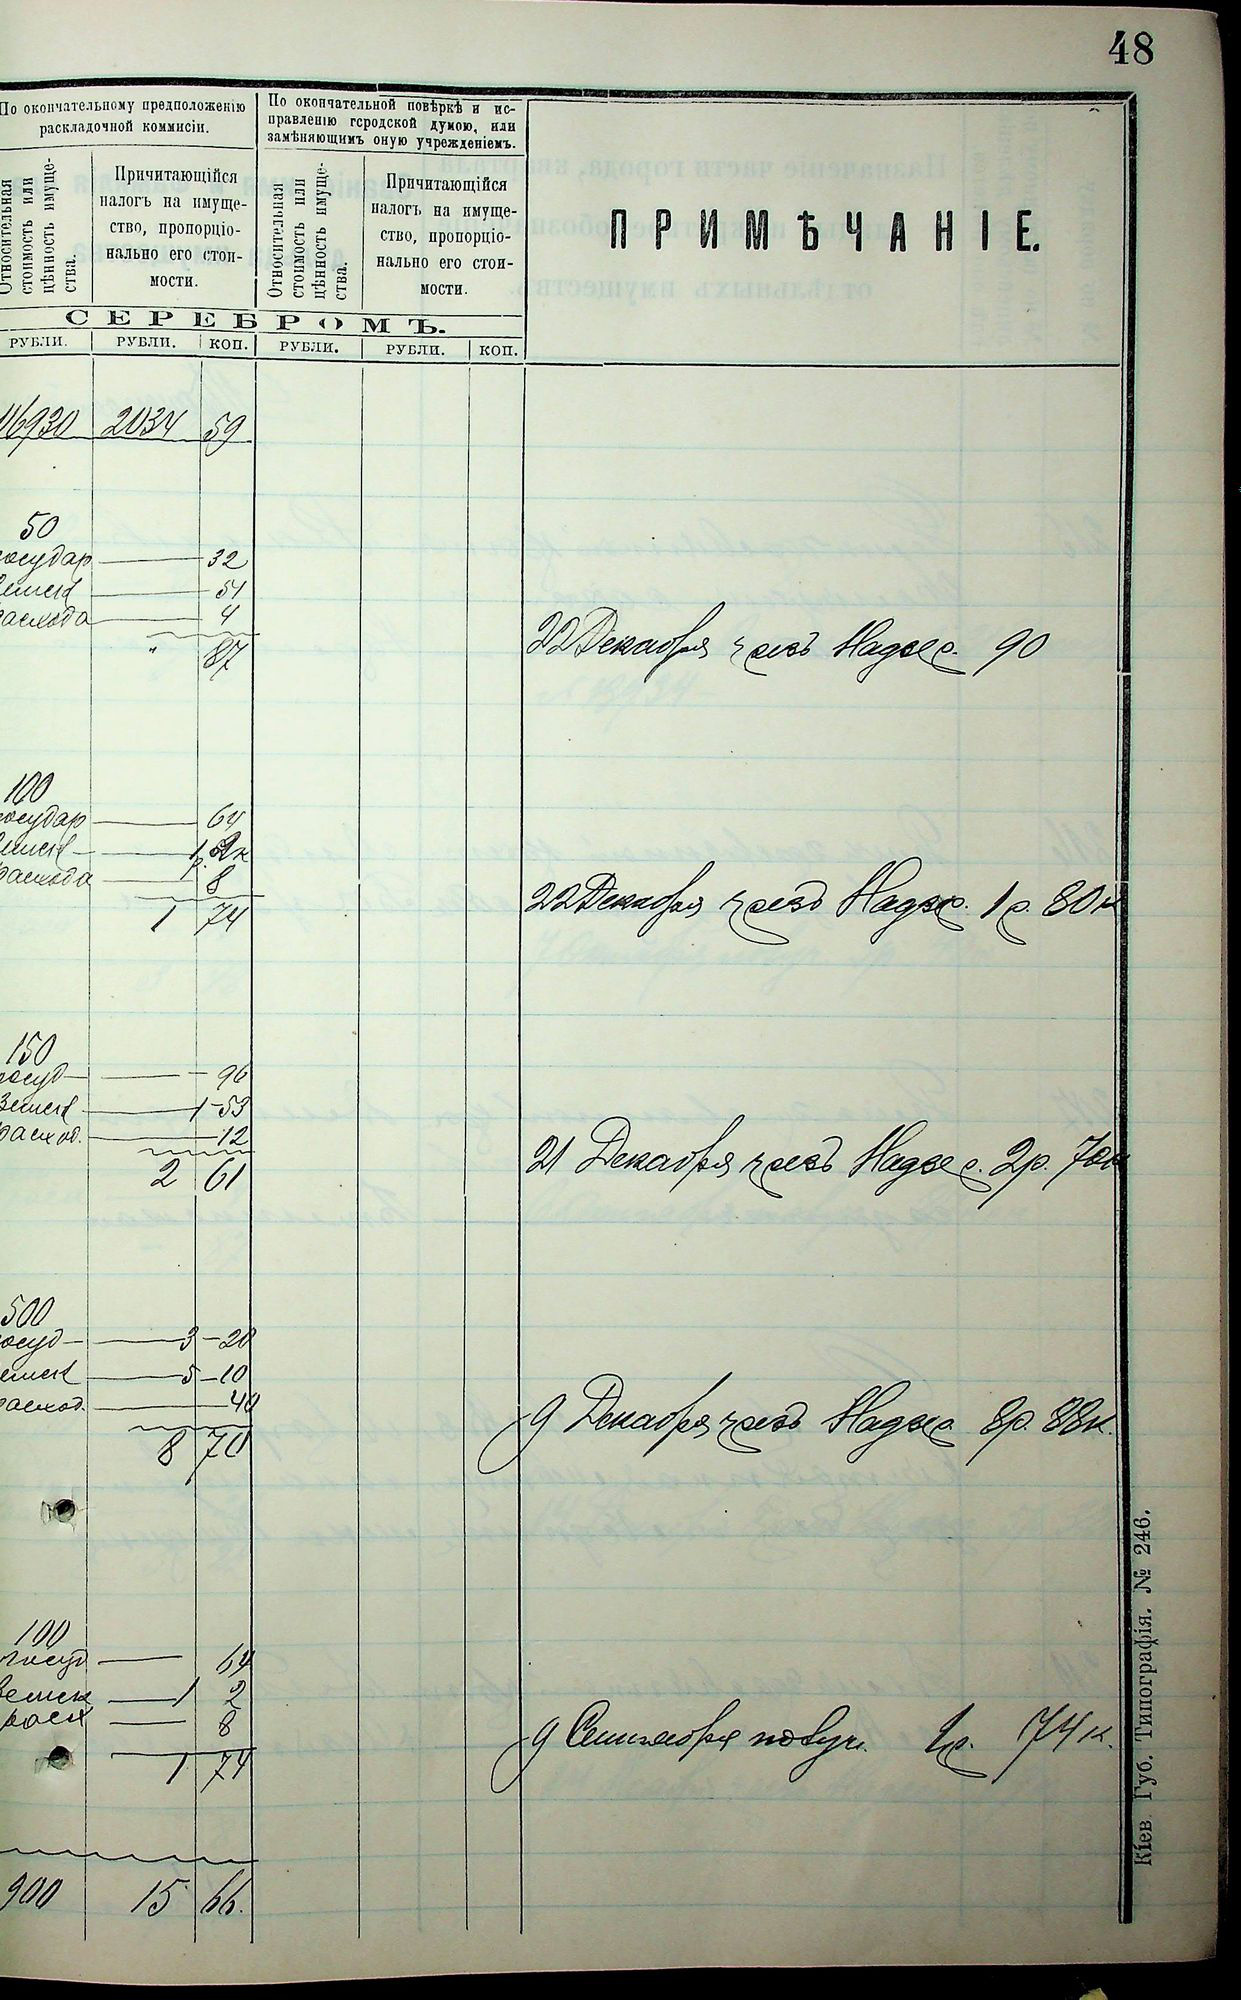 48
По окончательному предположенію
раскладочной коммисіи.
По окончательной повѣркѣ и ис-
правленію городской думою, или
замѣняющимъ оную учрежденіемъ.
Относительная
стоимость или
цѣнность имуще-
ства.
Причитающійся
налогъ на имуще-
ство, пропорціо-
нально его стои-
мости.
Относительная
стоимость или
цѣнность имуще-
ства.
Причитающійся
налогъ на имуще-
ство, пропорціо-
нально его стои-
мости.
ПРИМѢЧАНІЕ.
СЕРЕБРОМЪ.
РУБЛИ. РУБЛИ. КОП. РУБЛИ. РУБЛИ. КОП.
16930 2034 59
50
государ 32
Земск 51
расхода 4
" 87
22 Декабря чрезъ Надзе. 90
100
государ 64
Земск 1 р. 2к
расхода 8
1 74
22 Декабря чрезъ Надзе. 1 р. 80 к
150
госуд 96
Земск 1-53
расход. 12
2 61
21 Декабря чрезъ Надзе. 2р. 70к
500
госуд 3-20
Земск 5-10
расход. 40
8 70
9 Декабря чрезъ Надзе. 8р. 88к.
100
госуд 64
Земск 1 2
расх 8
1 74
9 Сентября получ. 1р. 74 к.
900 15 66.
Кіев. Губ. Типографія. № 246.